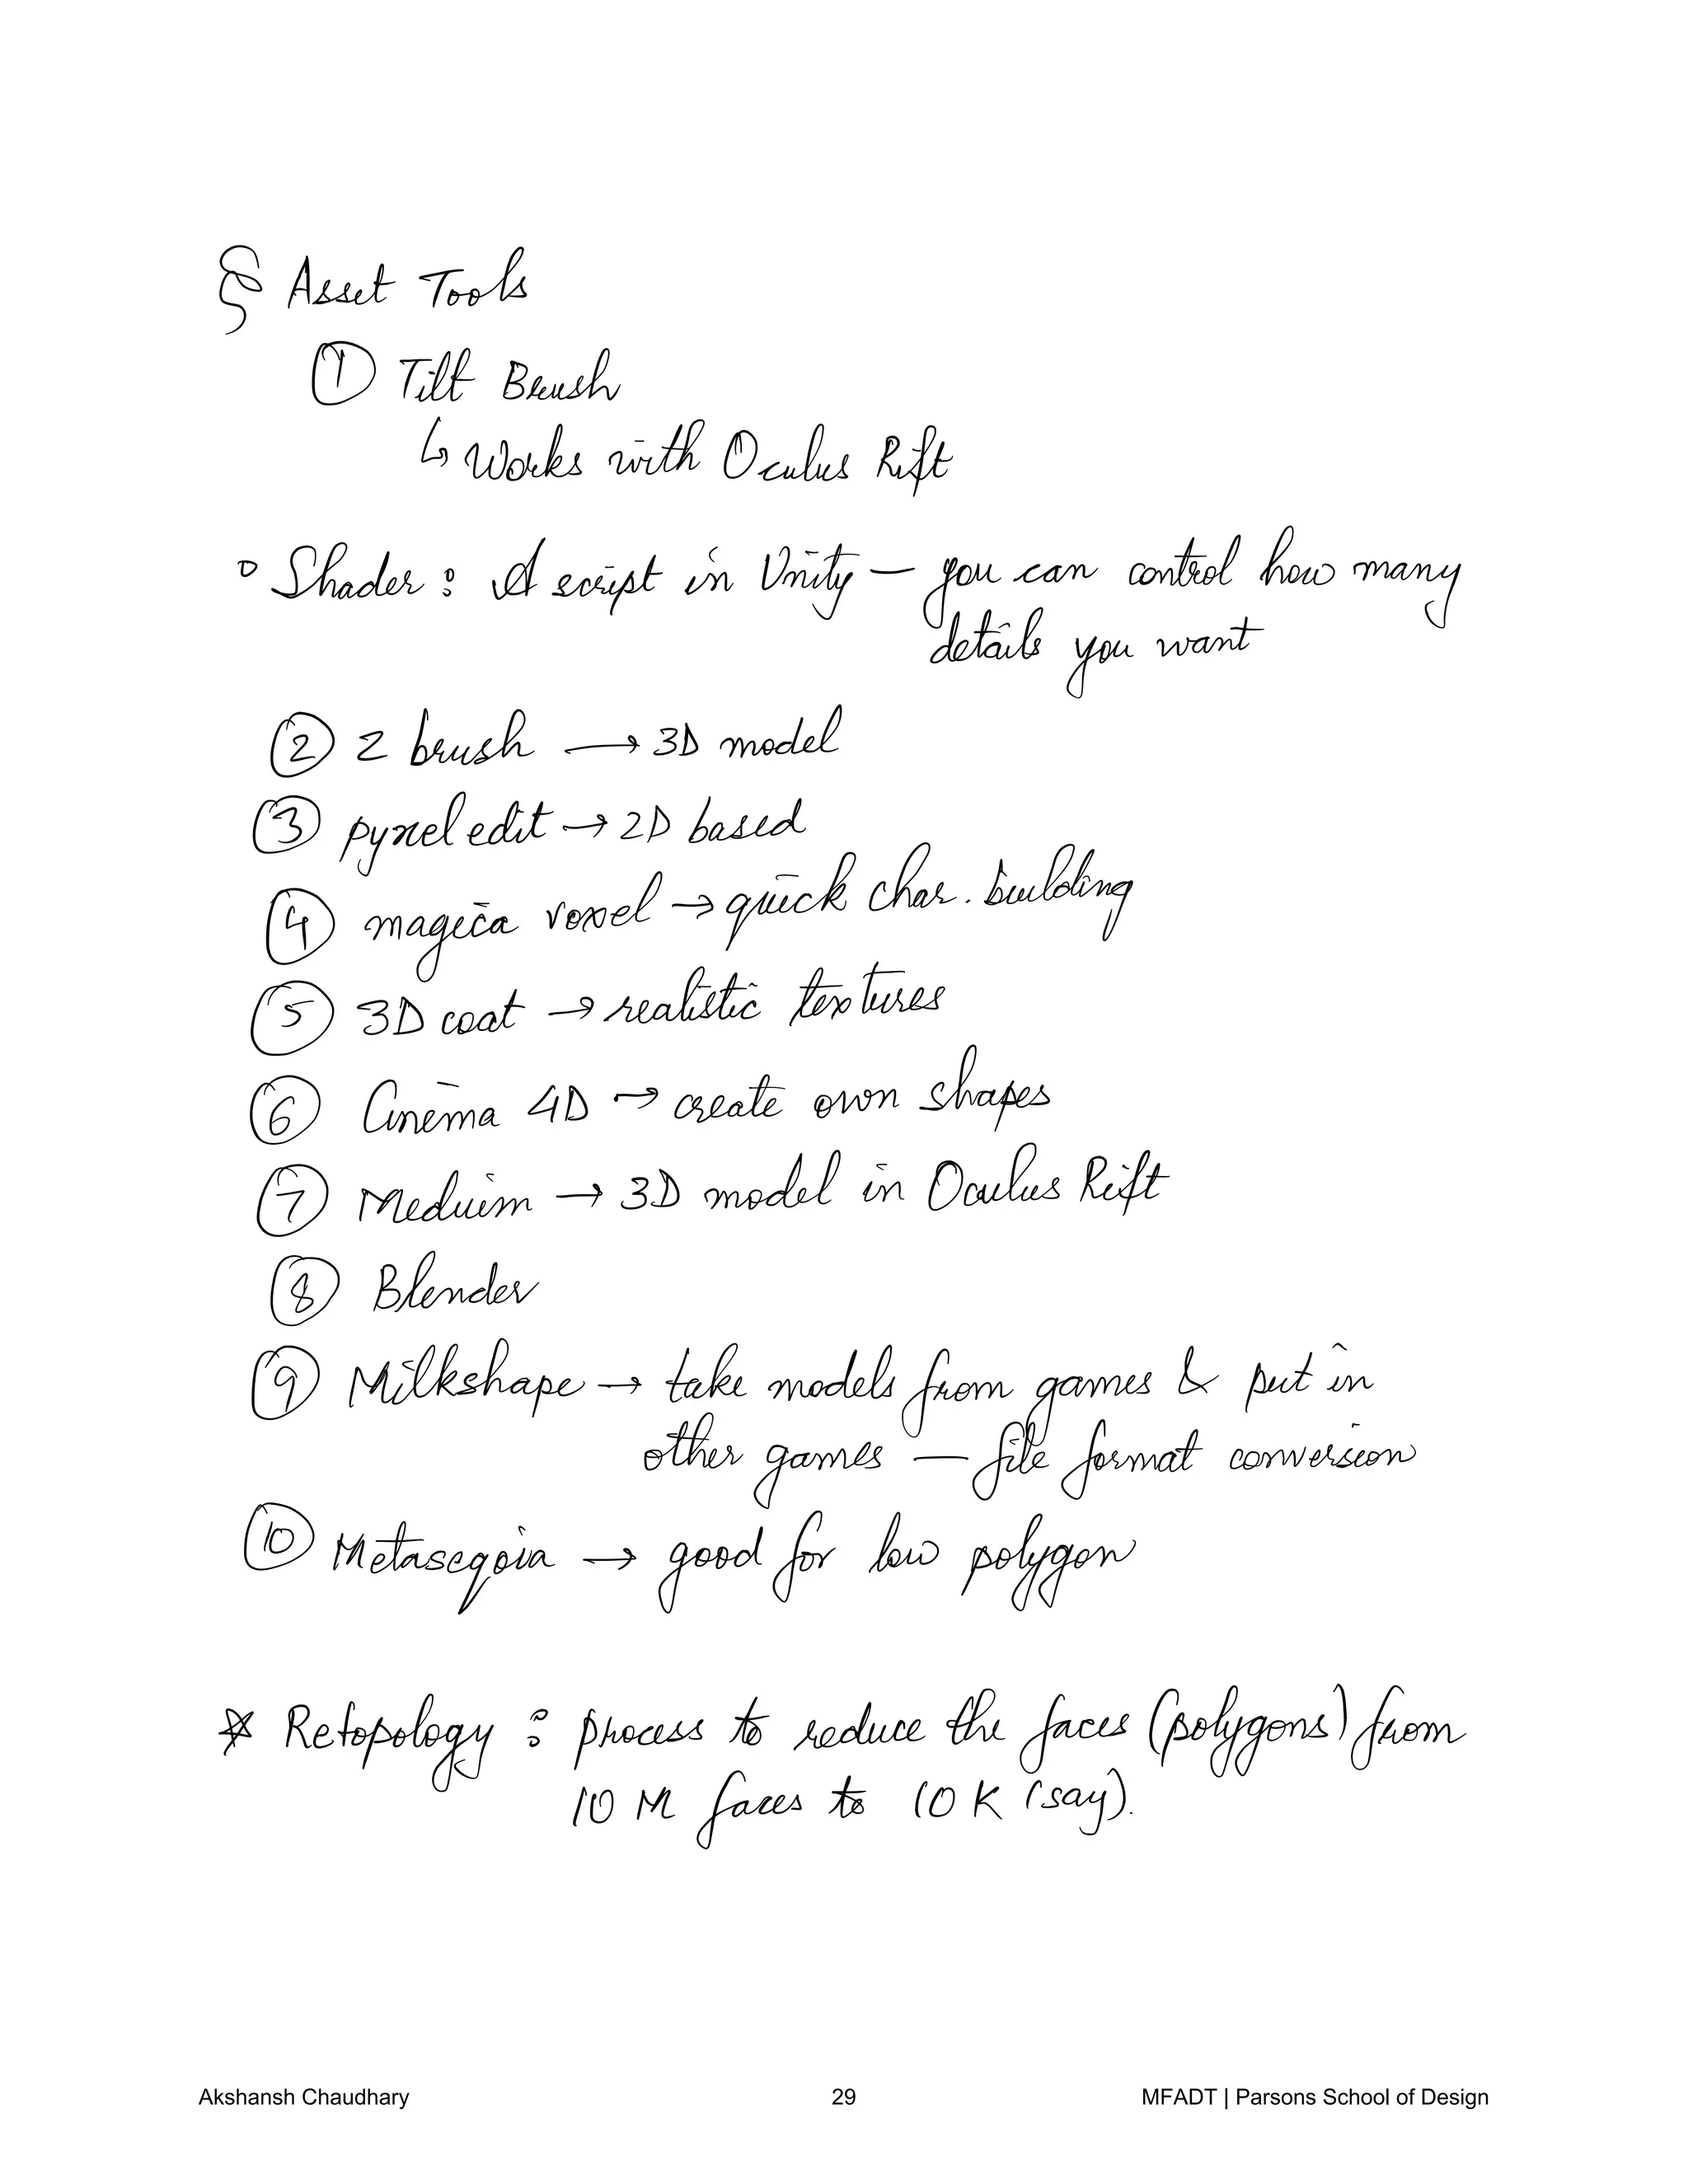 § Asset Tools
① Tilt Brush
↳ Works with Oculus Rift
° Shader : A script in Unity — you can control how many
details you want
② Z brush → 3D model
③ pyxel edit → 2D based
④ magica voxel → quick char. building
⑤ 3D coat → realistic textures
⑥ Cinema 4D → create own shapes
⑦ Medium → 3D model in Oculus Rift
⑧ Blender
⑨ Milkshape → take models from games & put in
other games — file format conversion
⑩ Metaseqoia → good for low polygon
* Retopology : process to reduce the faces (polygons) from
10 M faces to 10 K (say).
Akshansh Chaudhary 29 MFADT | Parsons School of Design